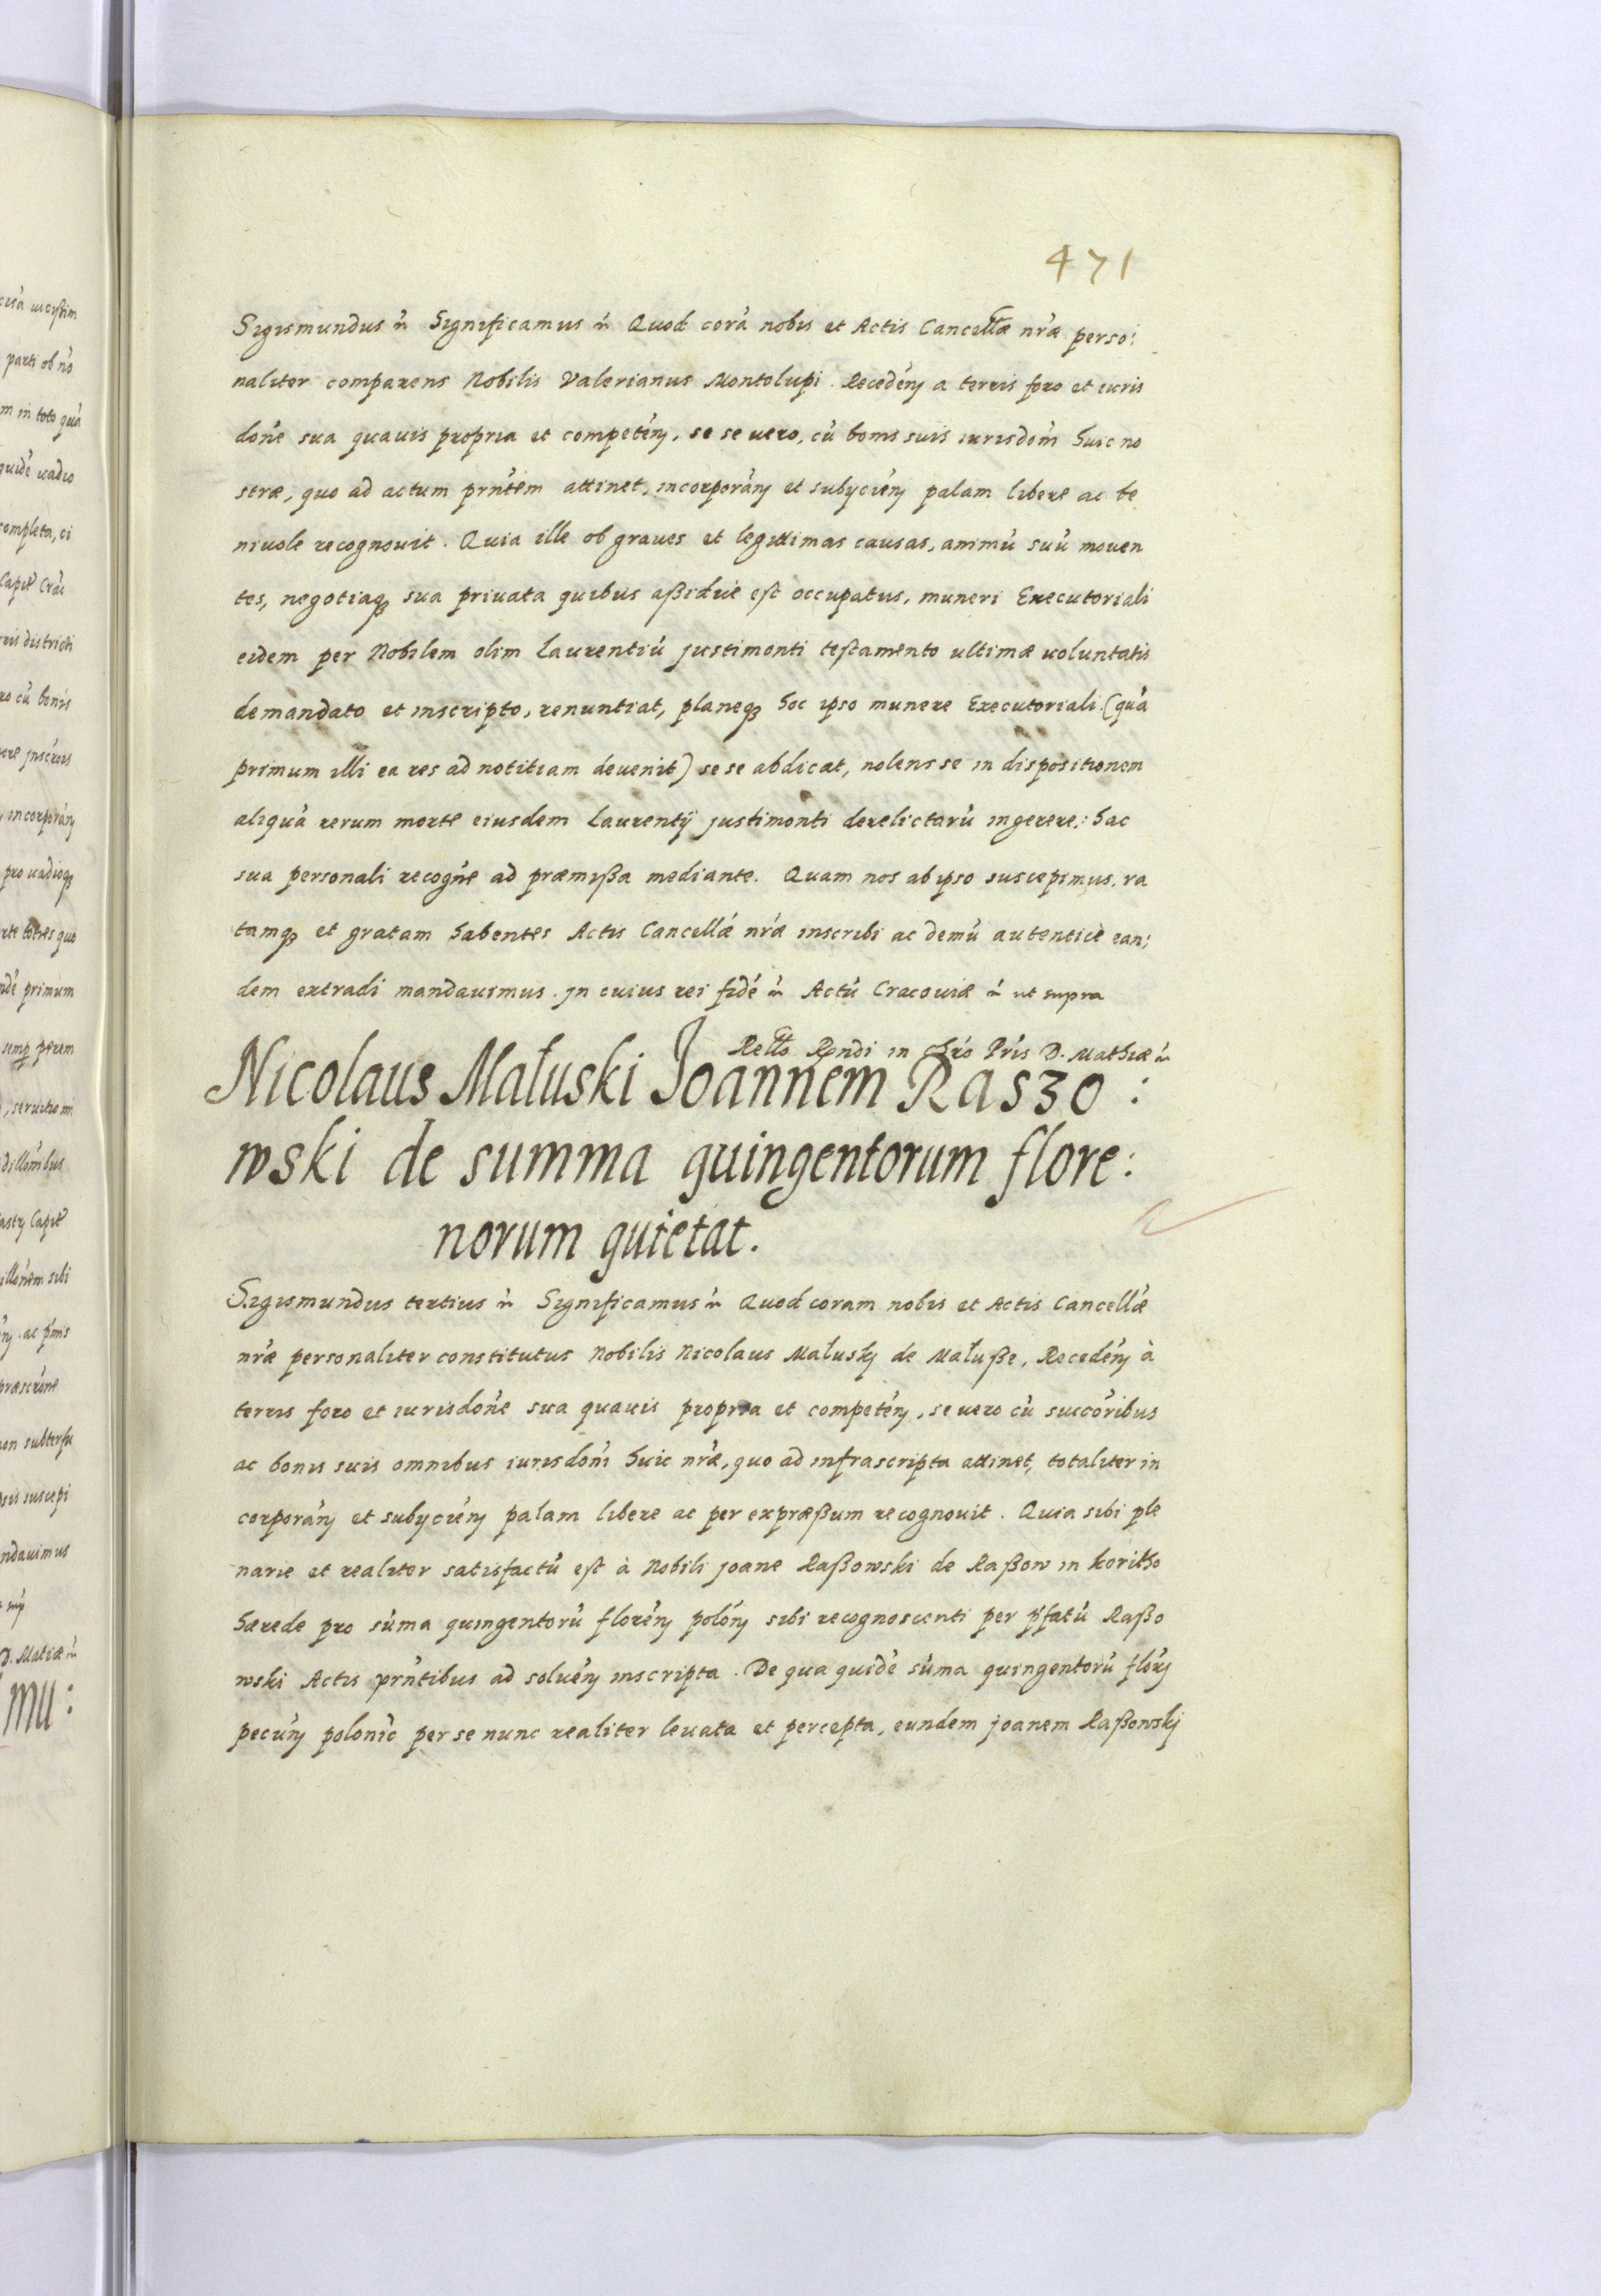 471
Sigismundus etc Significamus etc Quod corā nobis et Actis Cancellæ nr̄æ perso:
naliter comparens Nobilis Valerianus Montolupi. Recedēn a terris foro et iuris
dōne sua quavis propria et competēn, se se uero, cū bonis suis iurisdōni huic no
stræ, quo ad actum prn̄tem attinet, incorporān et subyciēn palam libere ac be
niuole recognouit. Quia ille ob graues et legittimas causas, animū suū mouen
tes, negotiaq3 sua priuata quibus aßidue est occupatus, muneri Executoriali
eidem per Nobilem olim Laurentiū justimonti testamento ultimæ uoluntatis
demandato et inscripto, renuntiat, planeq3 hoc ipso munere Executoriali (quā
primum illi ea res ad notitiam deuenit) se se abdicat, nolens se in dispositionem
aliquā rerum morte eiusdem Laurentij justimonti derelictarū ingerere: hac
sua personali recogn̄e ad præmißa mediante. Quam nos ab ipso suscepimus, ra
tamq3 et gratam habentes Actis Cancellæ nr̄æ inscribi ac demū autenticè ean:
dem extradi mandauimus. jn cuius rei fidē etc Actū Cracouiæ etc ut supra
Rello Rndi in Chro Pris D. Mathiæ etc
Nicolaus Małuski Joannem Raszo:
wski de summa quingentorum flore:
norum quietat.
Sigismundus tertius etc Significamus etc Quod coram nobis et Actis Cancellæ
nr̄æ personaliter constitutus Nobilis Nicolaus Małuskj de Małuße, Recedēn à
terris foro et iurisdōne sua quauis propria et competēn, se uero cū succōribus
ac bonis suis omnibus iurisdōni huic nr̄æ, quo ad infrascripta attinet, totaliter in
corporān et subyciēn palam libere ac per expræßum recognouit. Quia sibi ple
narie et realiter satisfactū est à Nobili joane Raßowski de Raßow in koritho
hærede pro sūma quingentorū florēn polōn sibi recognoscenti per p̄fatū Raßo
wski Actis prn̄tibus ad soluēn inscripta. De qua quidē sūma quingentorū flōrn
pecūn polonīc per se nunc realiter leuata et percepta, eundem joanem Raßowskj